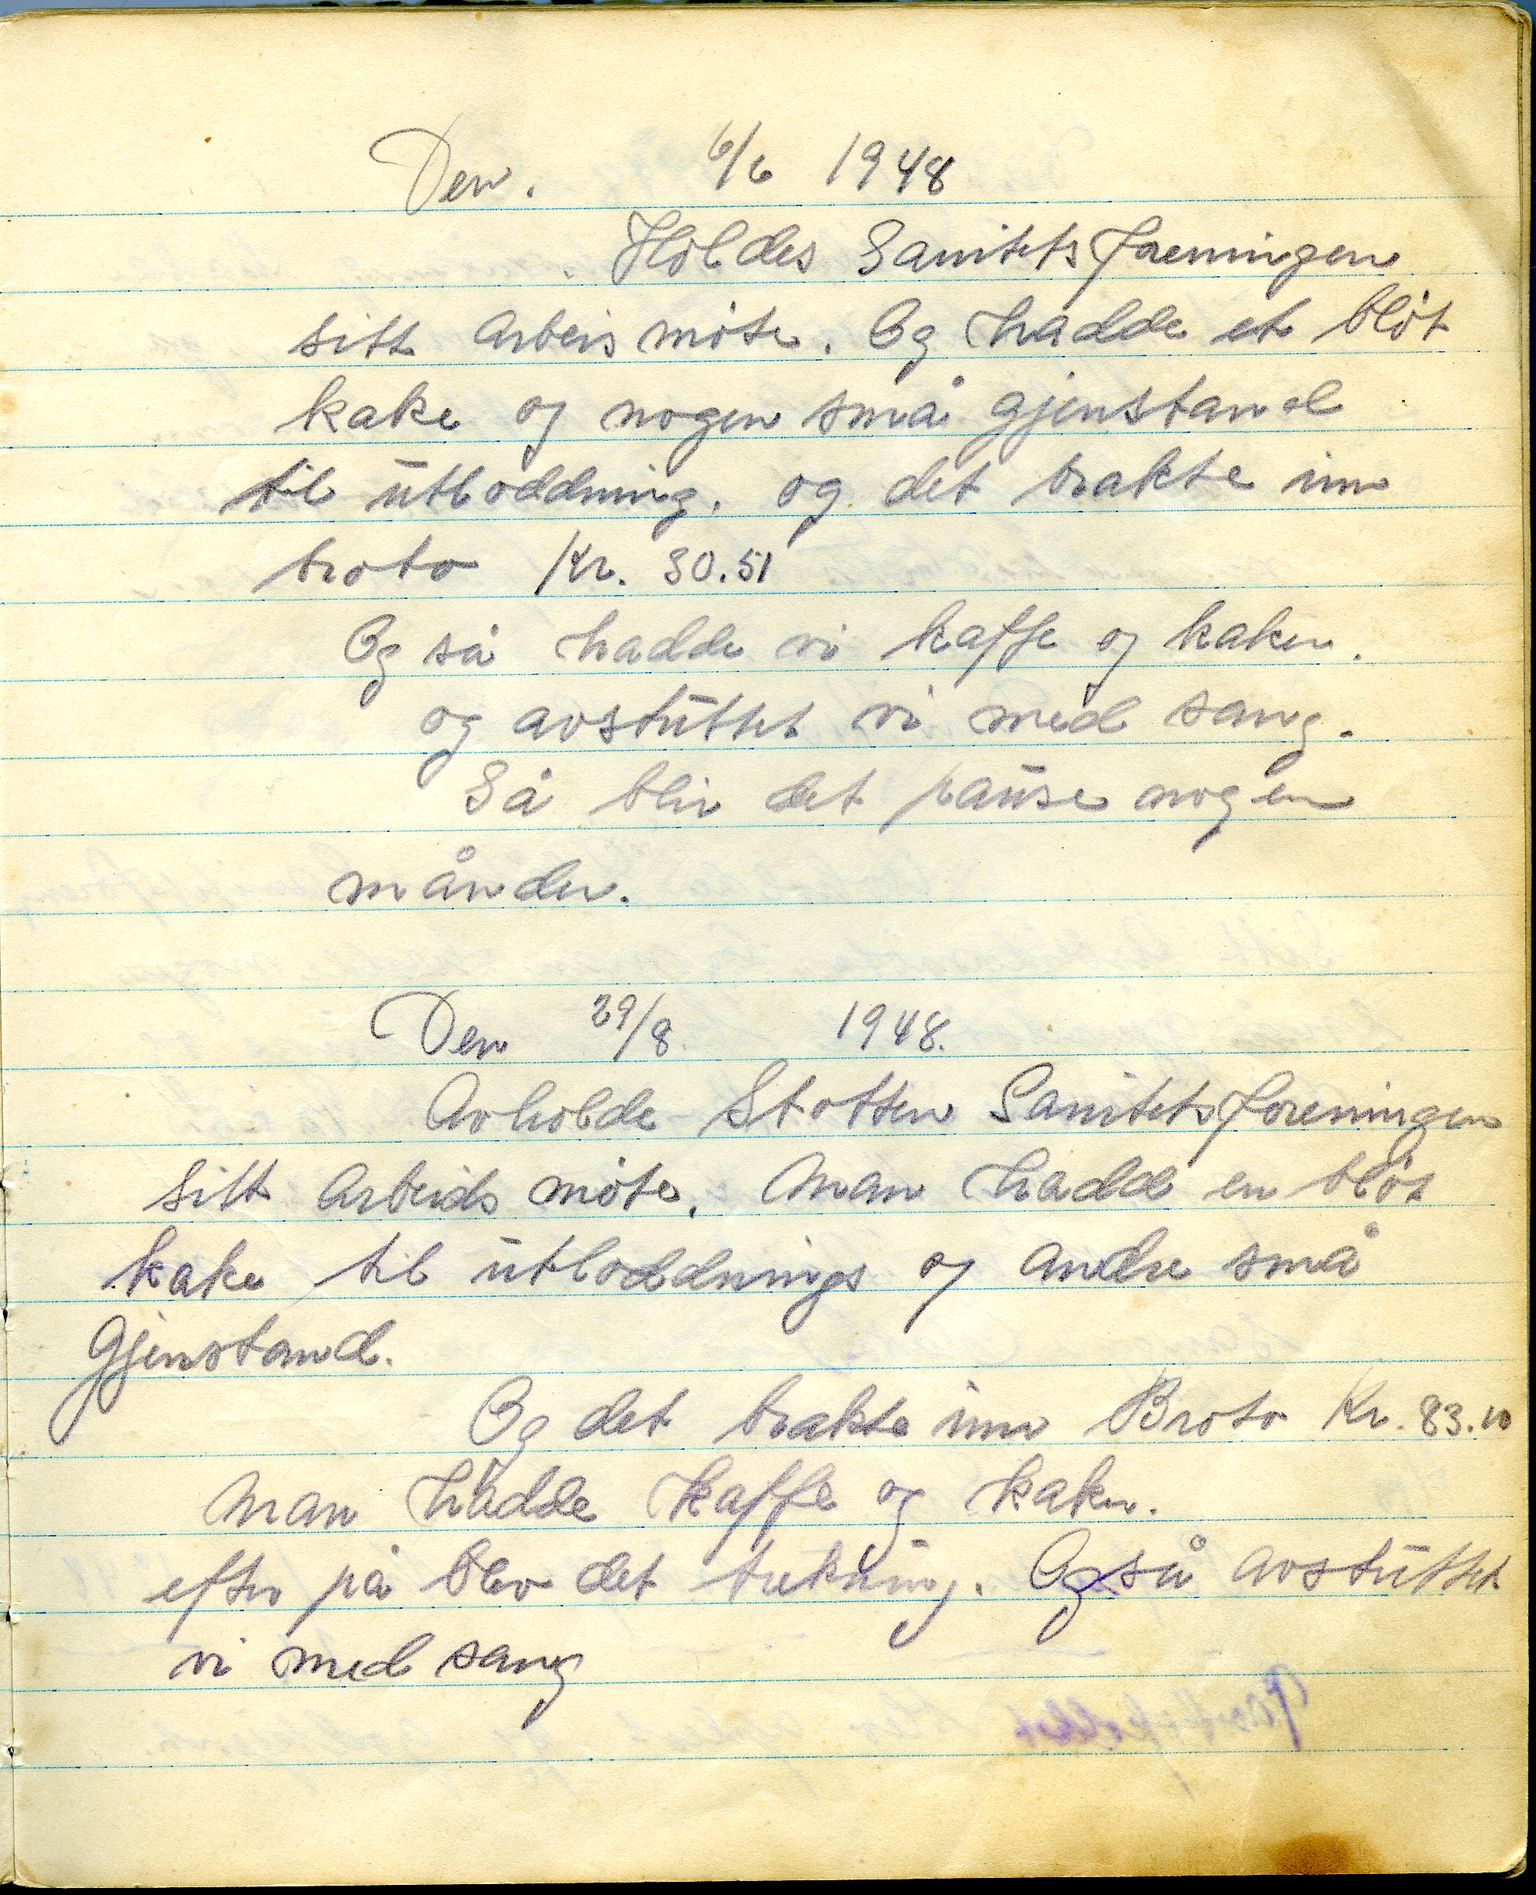 Den. 6/6 1948
Holdes Sanitetsforeningen
sitt Arbeis møte. Og hadde et bløt
kake og nogen små gjenstand
til utloddning. og det brakte inn
broto Kr. 30.51
Og så hadde vi kaffe og kaker.
og avsluttet vi med sang.
Så bliv det pause nogen
månder.
Den 29/8 1948.
Avholde Støtten Sanitetsforeningen
sitt Arbeids møte. Man hadde en bløt
kake til utloddnings og andre små
gjenstand.
Og det brakte inn Broto Kr. 83.10
Man hadde kaffe og kaker.
efter på blev det trekning. Også avsluttet
vi med sang